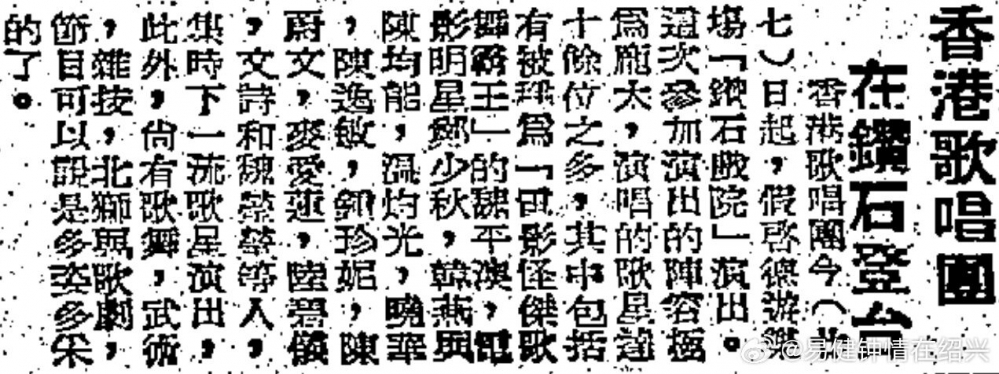 香港歌唱團
在鑽石登台
香港歌唱團今（廿
七）日起，假啓德游樂
塲「鑽石戲院」演出。
這次參加演出的陣容極
爲龐大，演唱的歌星達
十餘位之多，其中包括
有被稱爲「電影怪傑歌
舞霸王」的魏平澳，電
影明星鄭少秋，韓燕與
陳均能，溫灼光，曉華
，陳逸敏，珍妮，陳
蔚文，麥愛蓮，陸碧儀
，文詩和魏等人，
集時下一流歌星演出，
此外，尚有歌舞，武術
，雜技，北獅與歌劇，
節目可以說是多姿多采
的了。
@易健钟情在绍兴